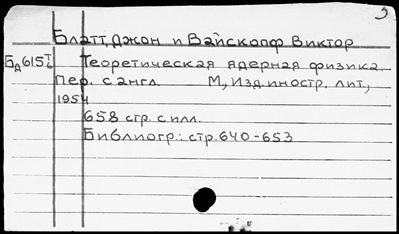 Блатт, Джон и Вайскопф Виктор
Теоретическая ядерная физика.
Пер. с англ. М, Изд. иностр. лит.,
1954
658 стр. с илл.
Библиогр.: стр. 640-653